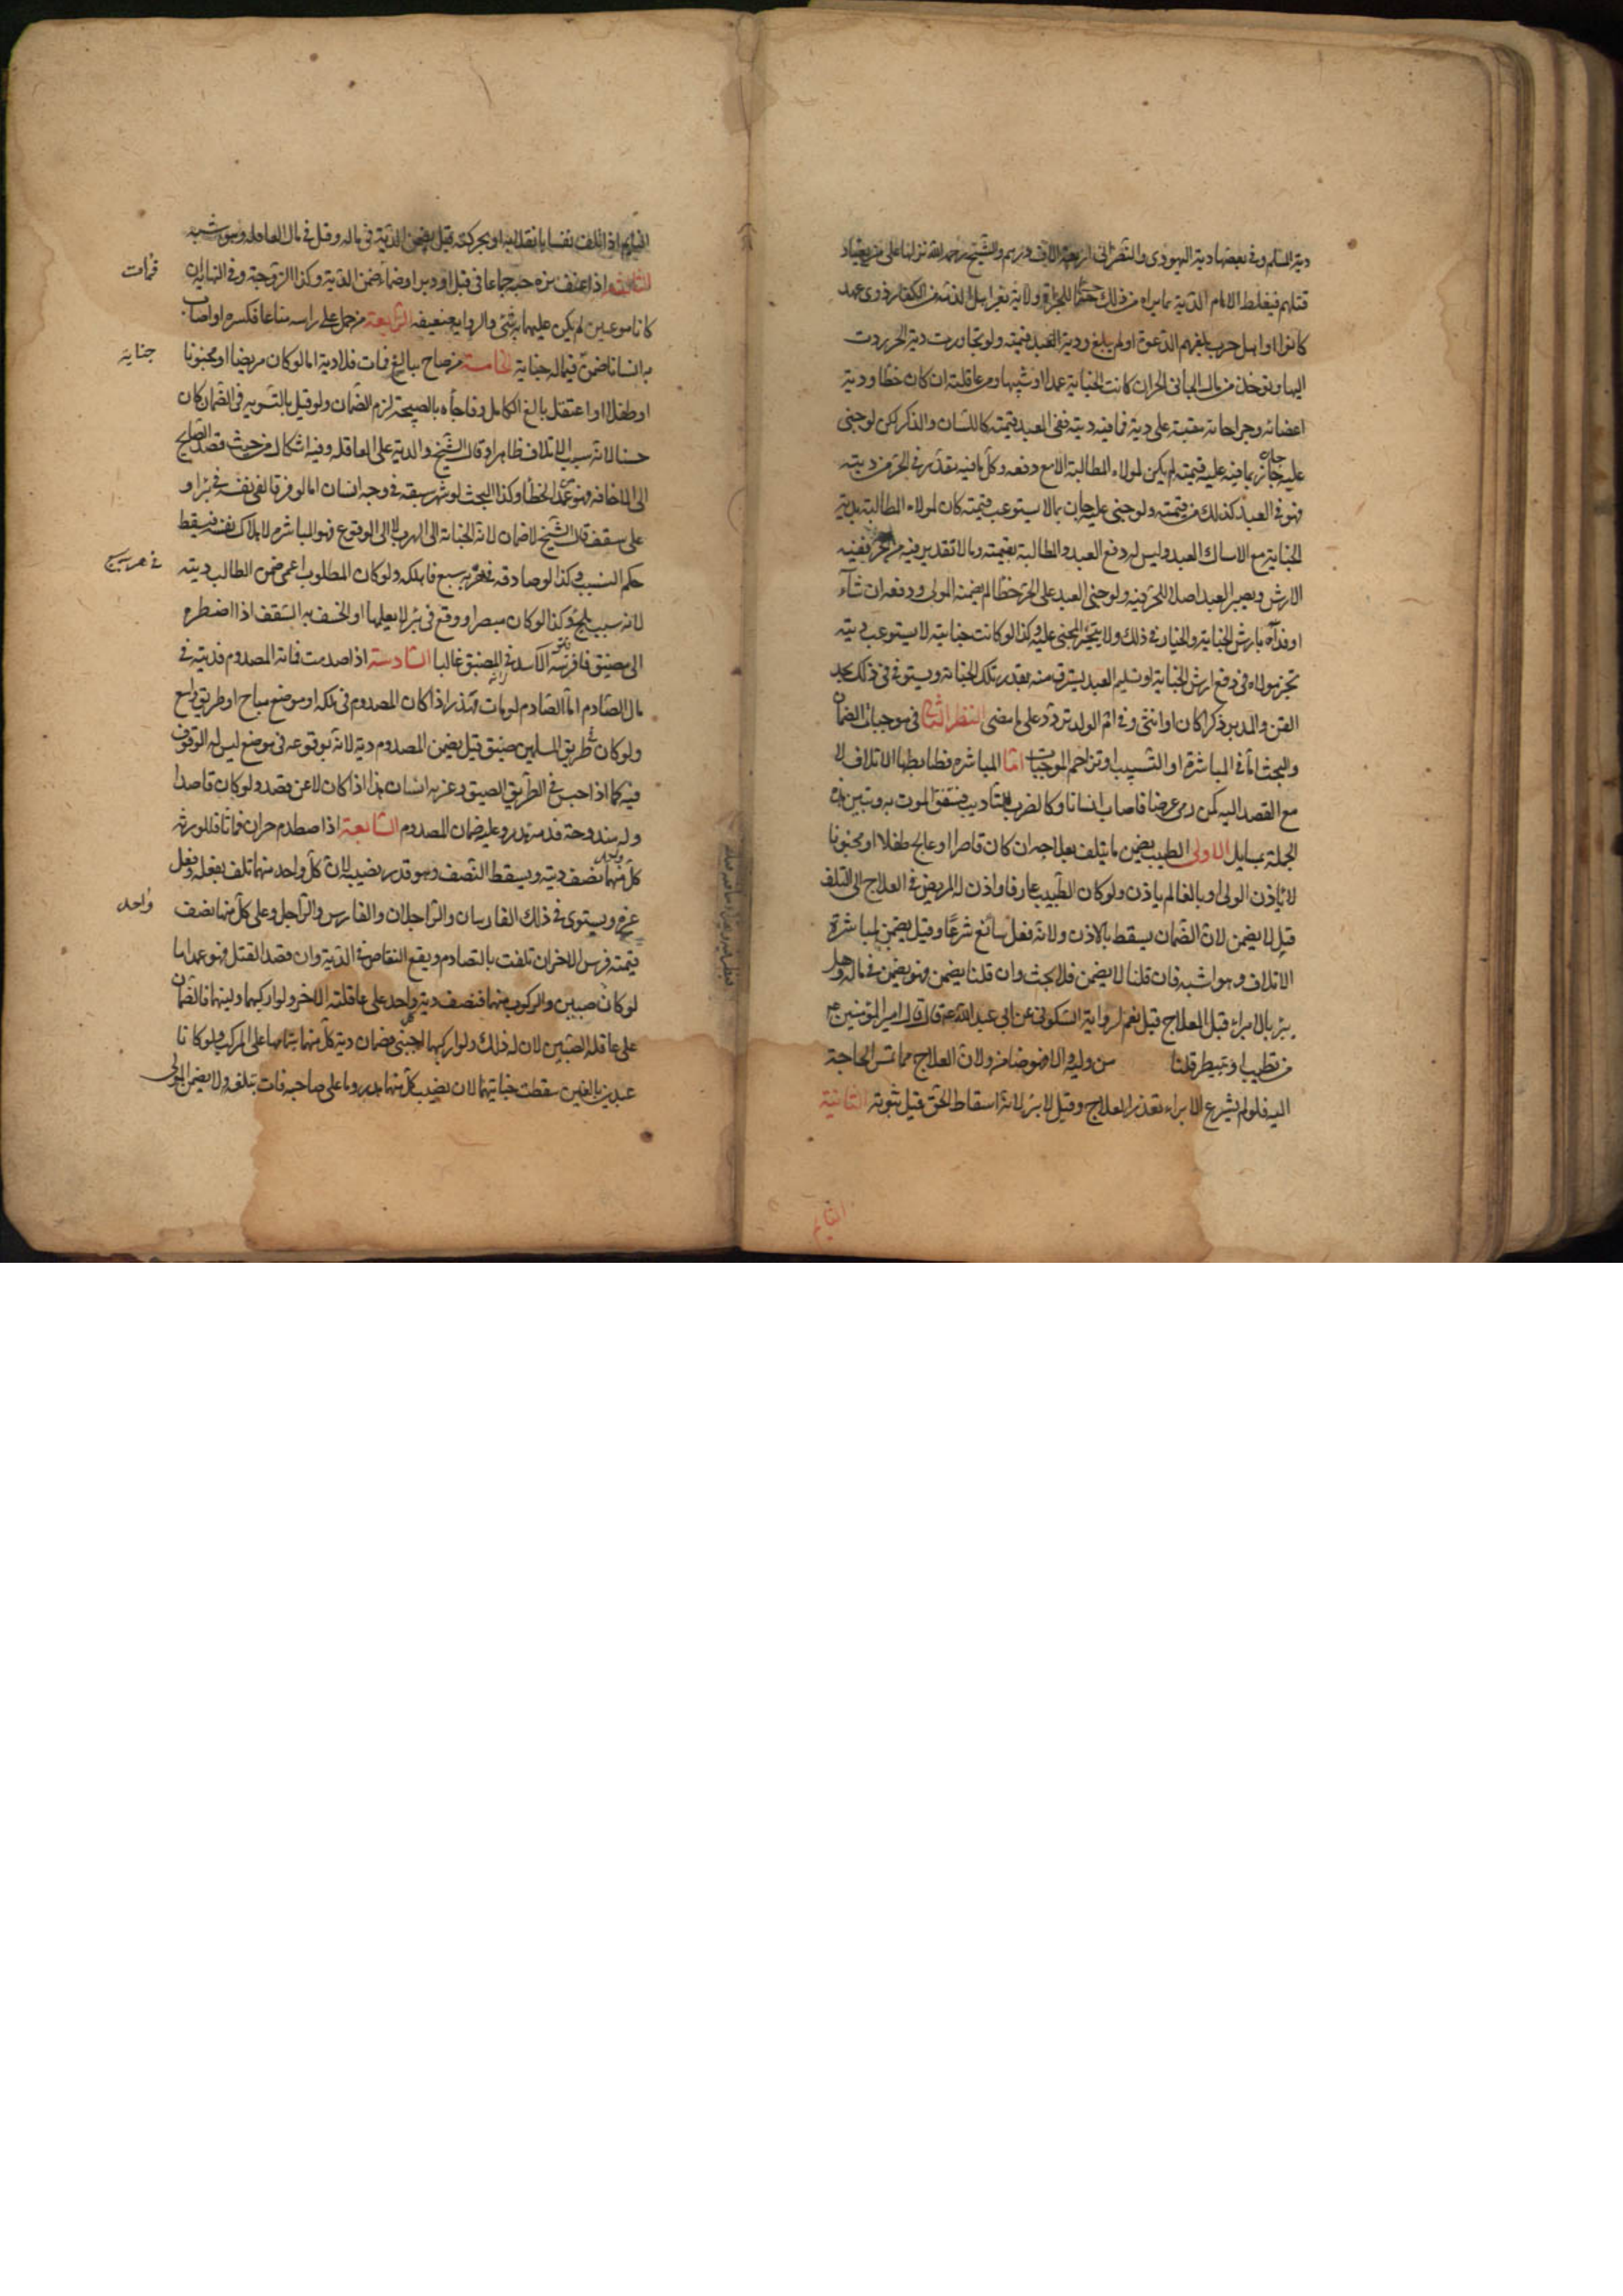 دية المسلم وفي بعضها دية اليهودي والنصراني اربعة الاف درهم والشيخ رحمه الله نزلها على من يعتاد
قتلهم فيغلظ الامام الدية بما يراه من ذلك حسما للجرأة ولا دية لغير اهل الذمة من الكفار ذوي عهد
كانوا او اهل حرب بلغتهم الدعوة او لم يبلغ ودية العبد قيمته ولو تجاوزت دية الحر ردت
اليها وتوخذ من مال الجاني الحر ان كانت الجناية عمدا او شبيها ومن عاقلته ان كان خطا ودية
اعضائه وجراحاته مقيسة على دية فما فيه ديته ففي العبد قيمته كاللسان والذكر لكن لو جنى
عليه جان بما فيه عليه قيمته لم يكن لمولاه المطالبة الا مع دفعه وكل ما فيه مقدر في الحر من ديته
فهو في العبد كذلك من قيمته ولو جنى عليه جان بما لا يستوعب قيمته كان لمولاه المطالبة بدية
الجناية مع امساك العبد وليس له دفع العبد والمطالبة بقيمته وما لا تقدير فيه من الحر ففيه
الارش ويصير العبد اصلا للحر فيه ولو جنى العبد على الحر خطا لم يضمنه المولى ودفعه ان شآء
او فداه بارش الجناية والخيار في ذلك ولا يتخير المجني عليه وكذا لو كانت جنايته لا يستوعب ديته
تخير مولاه في دفع ارش الجناية او تسليم العبد ليسترق منه بقدر تلك الجناية ويستوى في ذلك كله
القن والمدبر ذكرا كان او انثى وفي ام الولد تردد على ما مضى النظر الثاني في موجبات الضمان
والبحث اما في المباشرة او التسبيب او تزاحم الموجبات اما المباشرة فضابطها الاتلاف لا
مع القصد اليه كمن رمى غرضا فاصاب انسانا وكالضرب للتاديب فيتفق الموت به وتبيين هذه
الجملة بمسايل الاولى الطبيب يضمن ما يتلف بعلاجه ان كان قاصرا او عالج طفلا او مجنونا
لا باذن الولي او بالغا لم ياذن ولو كان الطبيب عارفا واذن له المريض في العلاج الى التلف
قيل لا يضمن لان الضمان يسقط بالاذن ولانه فعل سائغ شرعا وقيل يضمن لمباشرة
الاتلاف وهو اشبه فان قلنا لا يضمن فلا بحث وان قلنا يضمن فهو يضمن في ماله وهل
يبرئ بالابراء قبل العلاج قيل نعم لرواية السكوني عن ابي عبد الله ع قال قال امير المؤمنين ع
من تطبب او تبيطر فليأ من وليه والا فهو ضامن ولان العلاج مما تمس الحاجة
اليه فلو لم يشرع الابراء تعذر العلاج وقيل لا يبرئ لانه اسقاط الحق قبل ثبوته الثانية
النايم
النايم اذا اتلف نفسا بانقلابه او بحركته قيل يضمن الدية في ماله وقيل في مال العاقلة وهو اشبه
الثالثة اذا اعنف بزوجته جماعا في قبل او دبر او ضما فماتت ضمن الدية وكذا الزوجة وفي النهاية ان
كانا مامونين لم يكن عليهما شئ والرواية ضعيفة الرابعة من حمل على راسه متاعا فكسره او اصاب
به انسانا ضمن جناية في ماله الخامسة من صاح ببالغ فمات فلا دية اما لو كان مريضا او مجنونا
او طفلا او اغتفل بالغ الكامل وفاجأه بالصيحة لزم الضمان ولو قيل بالتسوية في الضمان كان
حسنا لانه سبب الاتلاف ظاهرا وقال الشيخ والدية على العاقلة وفيه اشكال من حيث قصد الصايح
الى الاخافة فهو عمد الخطأ وكذا البحث لو شهر سيفه في وجه انسان اما لو فر فالقى نفسه في بئر او
على سقف قال الشيخ لا ضمان لانه الجأه الى الهرب لا الى الوقوع فهو المباشر لاهلاك نفسه فيسقط
حكم التسبيب وكذا لو صادفه في هربه سبع فاهلكه ولو كان المطلوب اعمى ضمن الطالب ديته
لانه سبب ملجئ وكذا لو كان مبصرا ووقع في بئر لا يعلمها او انخسف به السقف اذا اضطره
الى مضيق فافترسه الاسد في المضيق غالبا السادسة اذا صدمت فانه المصدوم فديته في
مال الصادم اما الصادم لو مات فهدر اذا كان المصدوم في ملكه او موضع مباح او طريق واسع
ولو كان في طريق المسلمين ضيق قيل يضمن المصدوم ديته لانه بوقوعه في موضع ليس له الوقوف
فيه كما اذا جلس في الطريق الضيق وعثر به انسان هذا اذا كان لا عن قصد ولو كان قاصدا
وله مندوحة فدمه هدر وعليه ضمان المصدوم السابعة اذا اصطدم حران فماتا فللورثة
كل منهما نصف ديته ويسقط النصف وهو قدر نصيبه لان كل واحد منهما تلف بفعله وفعل
غيره ويستوي في ذلك الفارسان والراجلان والفارس والراجل وعلى كل منهما نصف
قيمة فرس الاخر ان تلفت بالتصادم ويقع التقاص في الدية وان قصد القتل فهو عمد اما
لو كان صبيين والركوب منهما فنصف دية كل واحد على عاقلة الاخر ولو اركبهما وليهما فالضمان
على عاقلة الصبيين لان له ذلك ولو اركبهما اجنبي فضمان دية كل منهما بتمامها على المركب ولو كانا
عبدين بالغين سقطت جنايتهما لان نصيب كل منهما هدر وما على صاحبه فات بتلفه ولا يضمن المولى
فماتت
جنايته
في هربه سبع
واحد